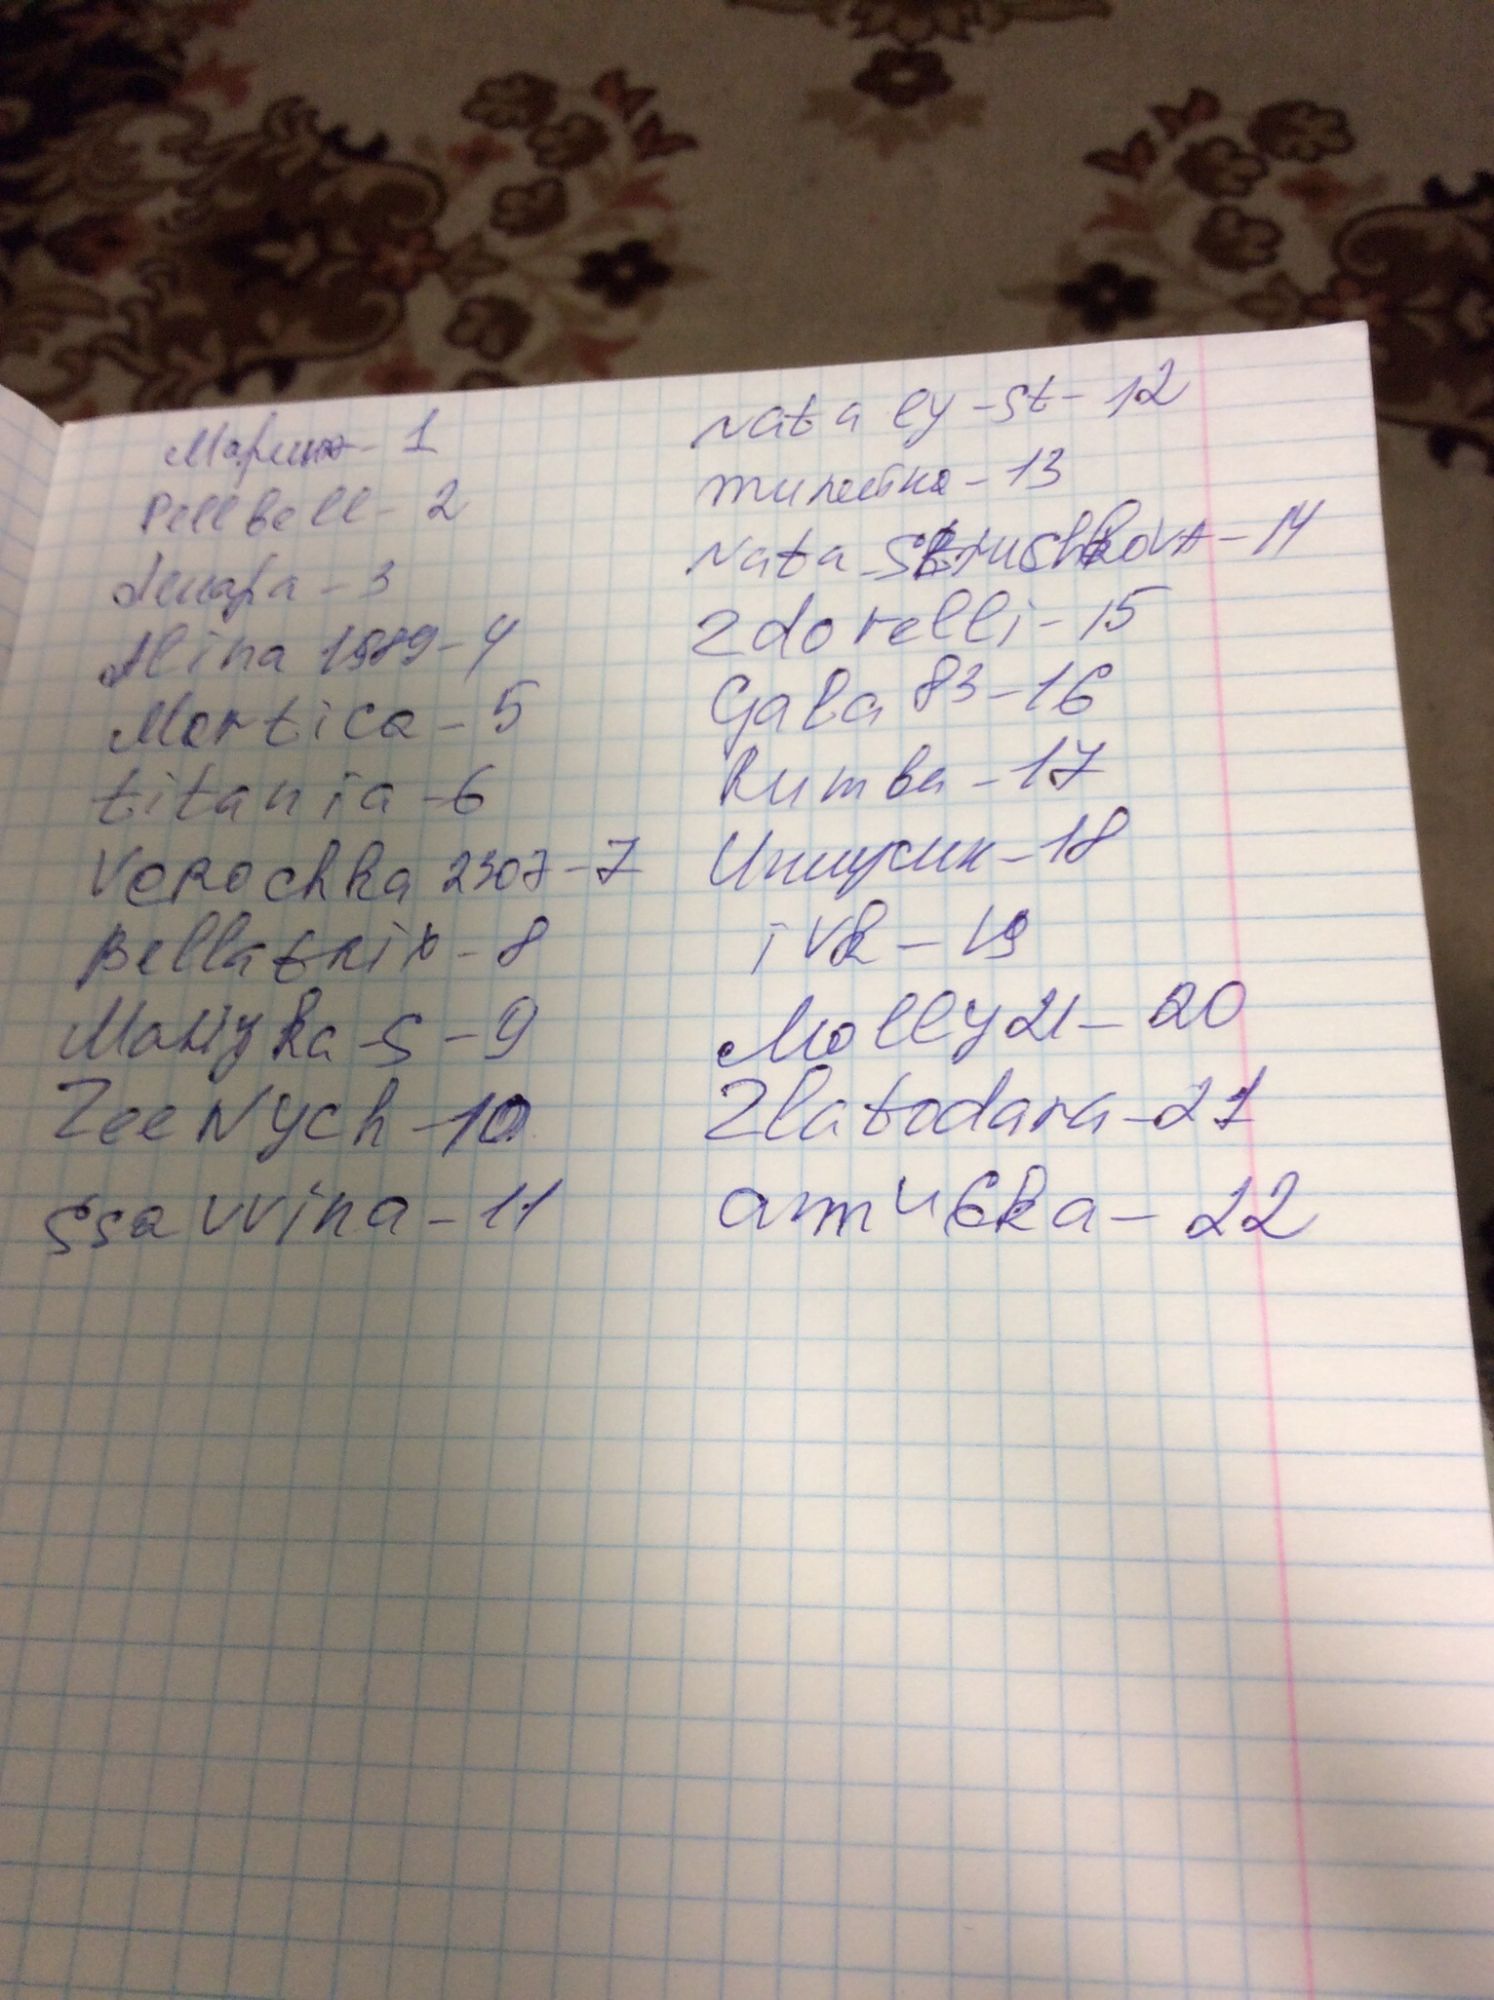 Марина - 1
Pellbell - 2
Ленара - 3
Alina 1989 - 4
Mortica - 5
titania - 6
Verochka 2307 - 7
Bellatrix - 8
Maniyka-S - 9
ZeeNych - 10
ssawwina - 11
Nata ly-st - 12
тилейка - 13
Nata Strushkova - 14
Zdorelli - 15
Gala 83 - 16
Rumba - 17
- 18
iVR - 19
Molly 21 - 20
Zlatodara - 21
- 22